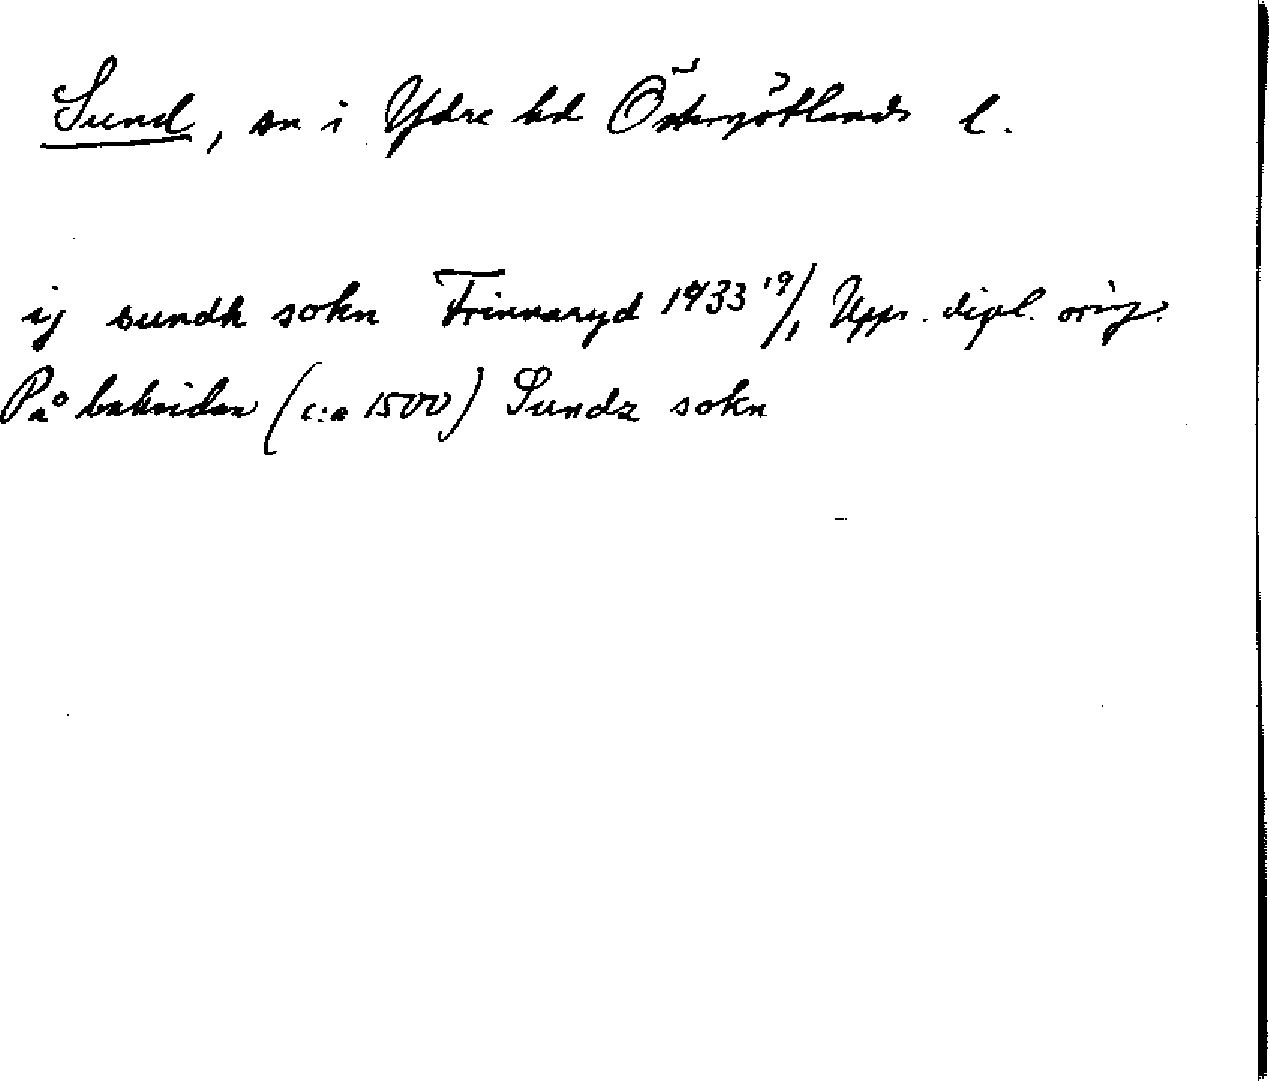 Sund, sn i Ydre hd Östergötlands l.
ij sundh sokn Frinnaryd 1433 19/1 Upps. dipl. orig.
På baksidan (c:a 1500) Sundz sokn